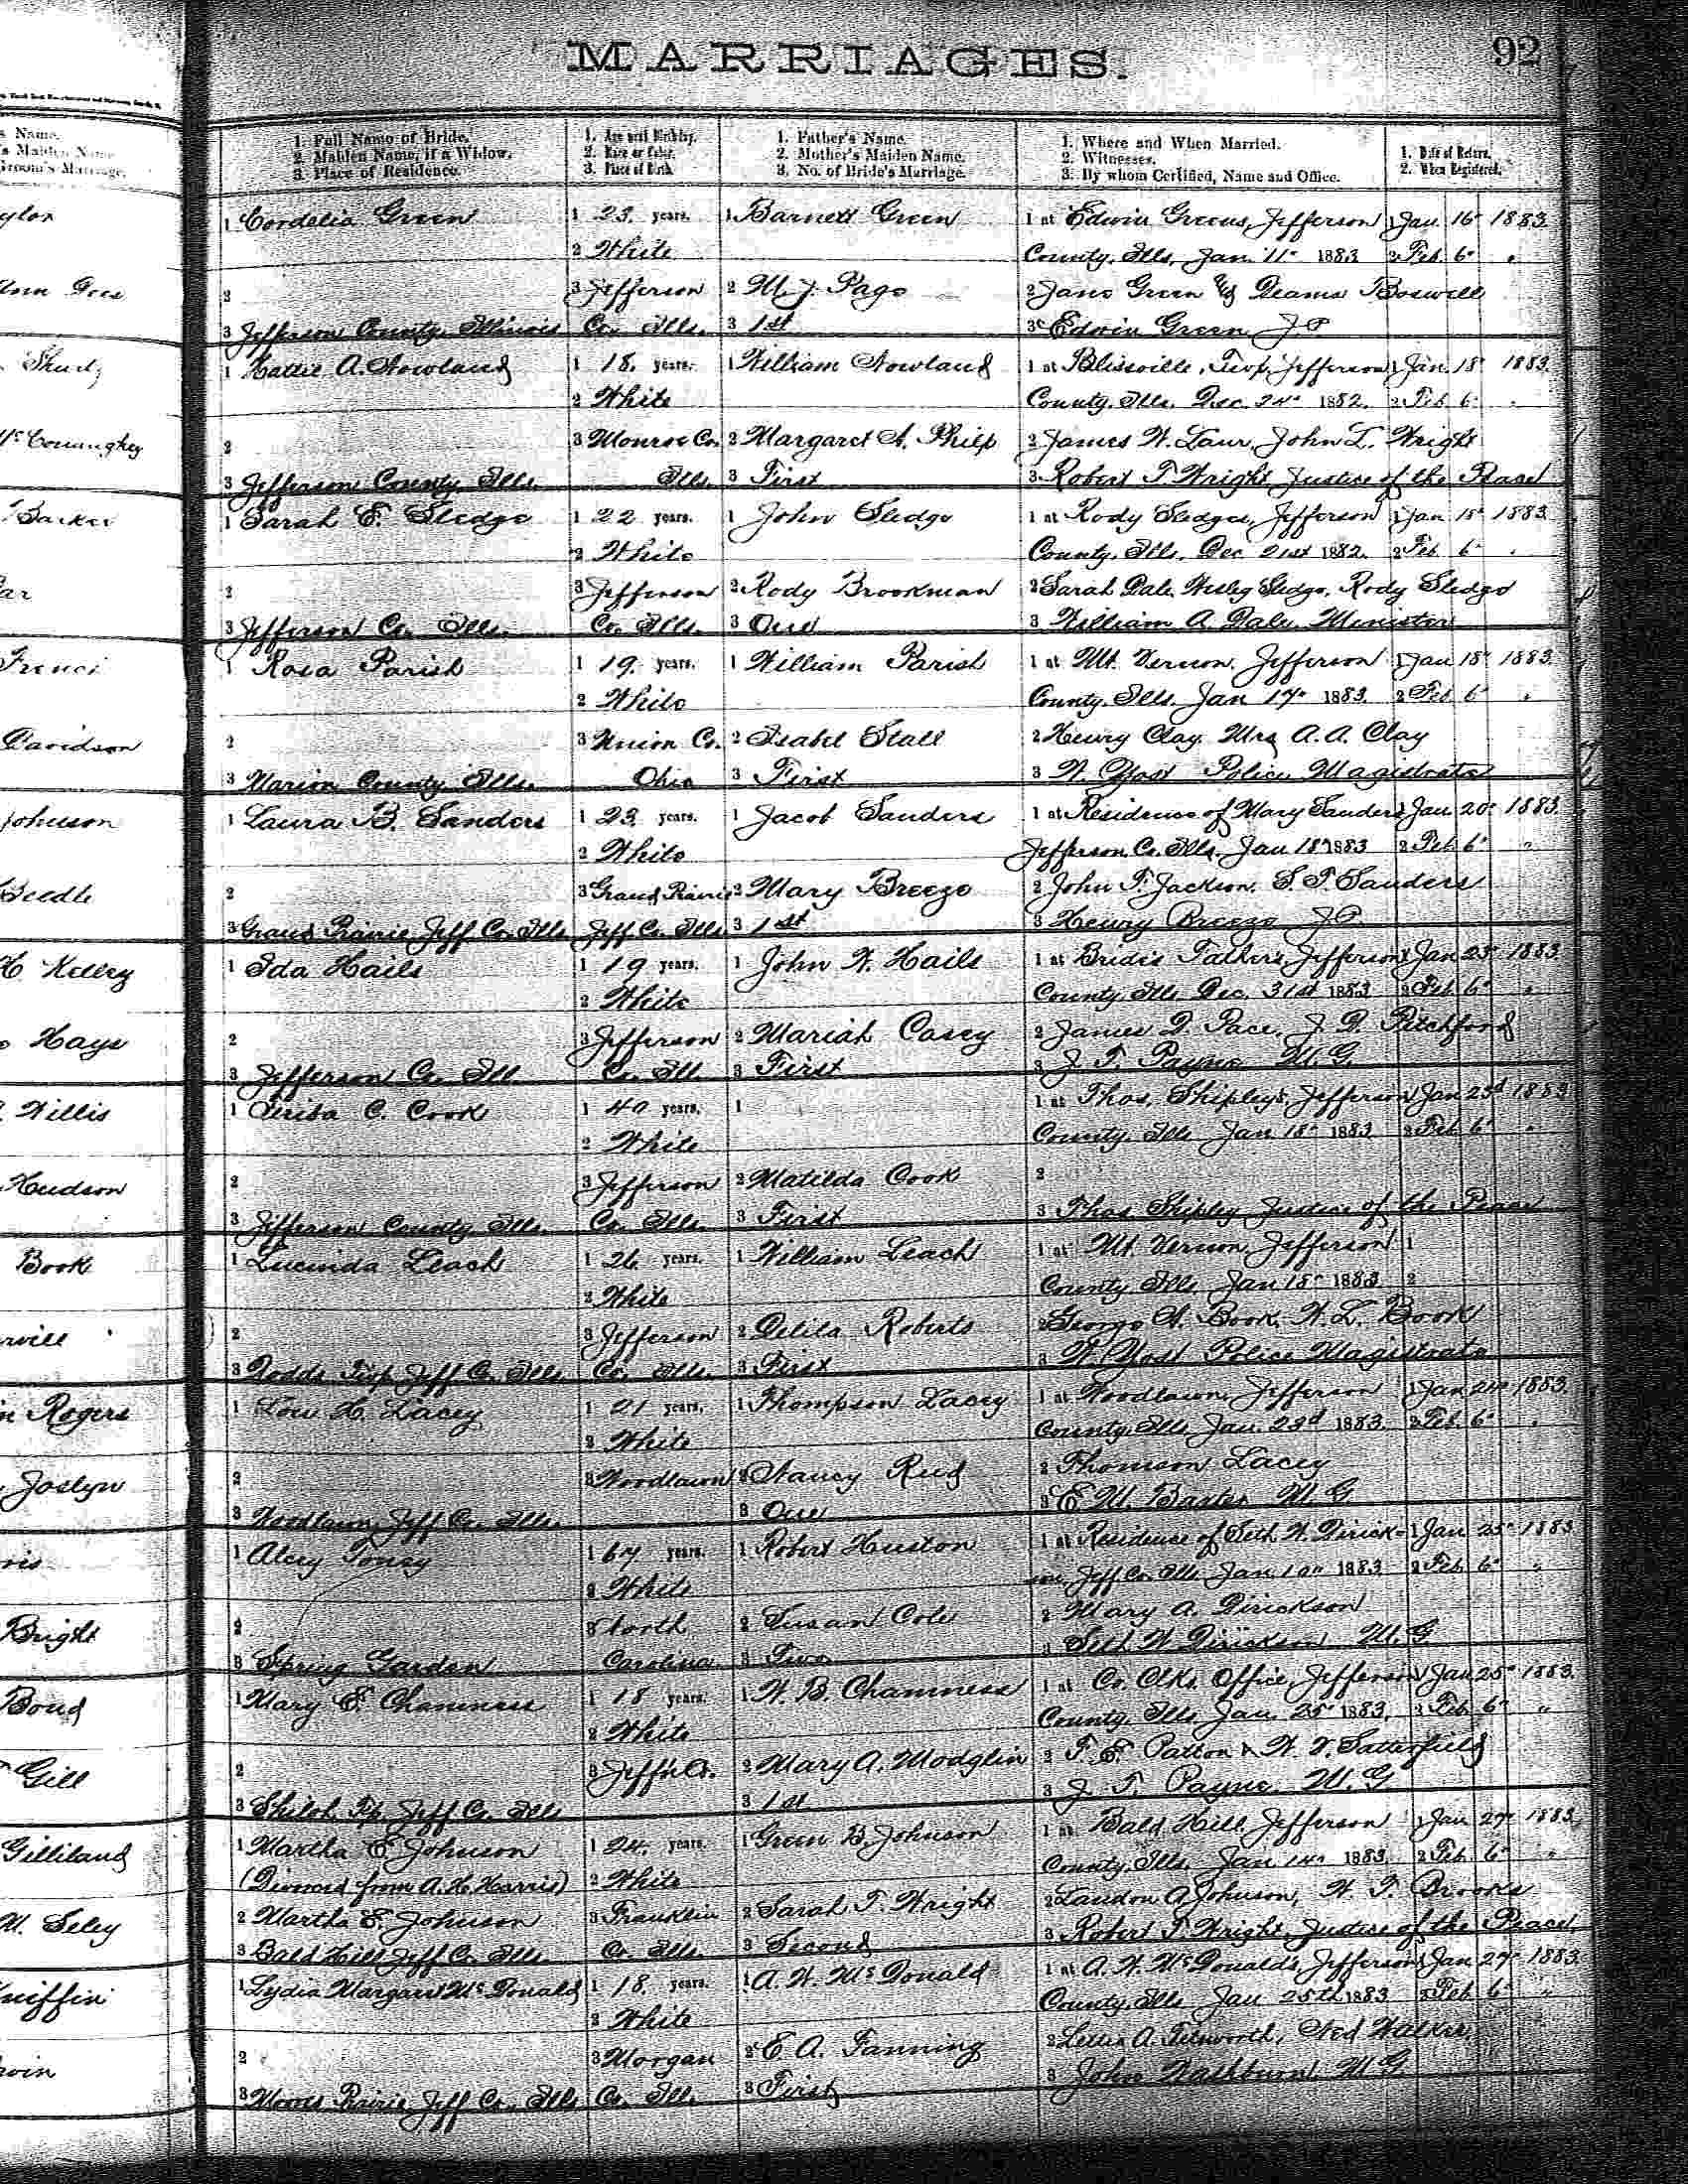 MARRIAGES.
92
1. Full Name of Bride.
2. Maiden Name, if a Widow.
3. Place of Residence.
1. Age next Birthday.
2. Race or Color.
3. Place of Birth.
1. Father's Name.
2. Mother's Maiden Name.
3. No. of Bride's Marriage.
1. Where and When Married.
2. Witnesses.
3. By whom Certified, Name and Office.
1. Date of Return.
2. When Registered.
1 Cordelia Green 1 23 years. 1 Barnett Green 1 at Edwin Greens, Jefferson 1 Jan. 16" 1883.
2 White County, Ills, Jan. 11" 1883 2 Feb. 6" "
2 3 Jefferson 2 M. J. Page 2 Jane Green & Deams Boswell
3 Jefferson County Illinois Co. Ills. 3 1st 3 Edwin Green J.P.
1 Hattie A. Nowland 1 18. years. 1 William Nowland 1 at Blissville, Twp. Jefferson 1 Jan. 18" 1883.
2 White County, Ills. Dec. 24" 1882. 2 Feb 6" "
2 3 Monroe Co. 2 Margaret A. Philp 2 James W. Laur, John L. Wright
3 Jefferson County Ills. Ills. 3 First 3 Robert T. Wright, Justice of the Peace
1 Sarah E. Sledge 1 22 years. 1 John Sledge 1 at Rody Sledges, Jefferson 1 Jan 18" 1883.
2 White County, Ills, Dec 21st 1882. 2 Feb. 6" "
2 3 Jefferson 2 Rody Brookman 2 Sarah Dale, Wesley Sledge, Rody Sledge
3 Jefferson Co. Ills. Co. Ills. 3 One 3 William A. Dale, Minister
1 Rosa Parish 1 19. years. 1 William Parish 1 at Mt. Vernon, Jefferson 1 Jan 18" 1883.
2 White County, Ills. Jan 17" 1883. 2 Feb 6" "
2 3 Union Co. 2 Isabel Stall 2 Henry Clay Mrs A. A. Clay
3 Marion County Ills. Ohio 3 First 3 W. Yost Police Magistrate
1 Laura B. Sanders 1 23. years. 1 Jacob Sanders 1 at Residence of Mary Sanders 1 Jan. 20" 1883.
2 White Jefferson Co. Ills. Jan 18" 1883 2 Feb 6" "
2 3 Grand Prairie 2 Mary Breeze 2 John T. Jackson, S. T. Sanders
3 Grand Prairie Jeff Co. Ills Jeff Co. Ills 3 1st 3 Henry Breeze J.P.
1 Ida Hails 1 19 years. 1 John W. Hails 1 at Bride's Father's, Jefferson 1 Jan 23" 1883
2 White County, Ills Dec. 31st 1883 2 Feb 6" "
2 3 Jefferson 2 Mariah Casey 2 James D. Pace, J. D. Pitchford
3 Jefferson Co. Ill. Co. Ill. 3 First 3 J. T. Payne M.G.
1 C. Cook 1 40 years. 1 1 at Thos. Shipley's, Jefferson 1 Jan 23d 1883
2 White County, Ills Jan 18" 1883 2 Feb 6" "
2 3 Jefferson 2 Matilda Cook 2
3 Jefferson County Ills. Co. Ills. 3 First 3 Thos Shipley Justice of the Peace
1 Lucinda Leach 1 26 years. 1 William Leach 1 at Mt. Vernon, Jefferson 1
2 White County Ills, Jan 18" 1883 2
2 3 Jefferson 2 Delila Roberts 2 George W. Book, W. L. Book
3 Dodds Twp Jeff Co. Ills Co. Ills. 3 First 3 W. Yost Police Magistrate
1 Lou H. Lacey 1 21 years. 1 Thompson Lacey 1 at Woodlawn, Jefferson 1 Jan 24" 1883.
2 White County, Ills Jan. 23d 1883. 2 Feb. 6" "
2 3 Woodlawn 2 Nancy Reid 2 Thomson Lacey
3 Woodlawn, Jeff Co. Ills. 3 One 3 E. M. Baxter M.G.
1 Alcey Toney 1 67 years. 1 Robert Huston 1 at Residence of Seth W. Dirick- 1 Jan 25" 1883
2 White son, Jeff Co. Ills. Jan. 10" 1883 2 Feb. 6" "
2 3 North 2 Susan Cole 2 Mary A. Dirickson
3 Spring Garden Carolina 3 Two 3 Seth W. Dirickson M.G.
1 Mary E. Chamness 1 18 years. 1 W. B. Chamness 1 at Co. Clks. Office, Jefferson 1 Jan 25" 1883.
2 White County, Ills Jan. 25" 1883. 2 Feb. 6" "
2 3 Jeff'n Co. 2 Mary A. Modglin 2 T. E. Patton & W. V. Satterfield
3 Shiloh Tp. Jeff Co. Ills 3 1st 3 J. T. Payne. M.G.
1 Martha E. Johnson 1 24. years. 1 Green B. Johnson 1 at Bald Hill, Jefferson 1 Jan 27" 1883.
(Divorced from A. H. Harris) 2 White County, Ills, Jan 14" 1883. 2 Feb. 6" "
2 Martha E. Johnson 3 Franklin 2 Sarah T. Wright 2 Landon A. Johnson, W. T. Brooks
3 Bald Hill Jeff Co. Ills. Co. Ills. 3 Second 3 Robert T. Wright, Justice of the Peace
1 Lydia Margaret McDonald 1 18. years. 1 A. W. McDonald 1 at A. W. McDonalds, Jefferson 1 Jan 27" 1883.
2 White County, Ills Jan 25th 1883 2 Feb 6" "
2 3 Morgan 2 E. A. Fanning 2 A. Titsworth, Ned Walker,
3 Moores Prairie, Jeff Co. Ills Co. Ill. 3 First 3 John Washburn, M.G.